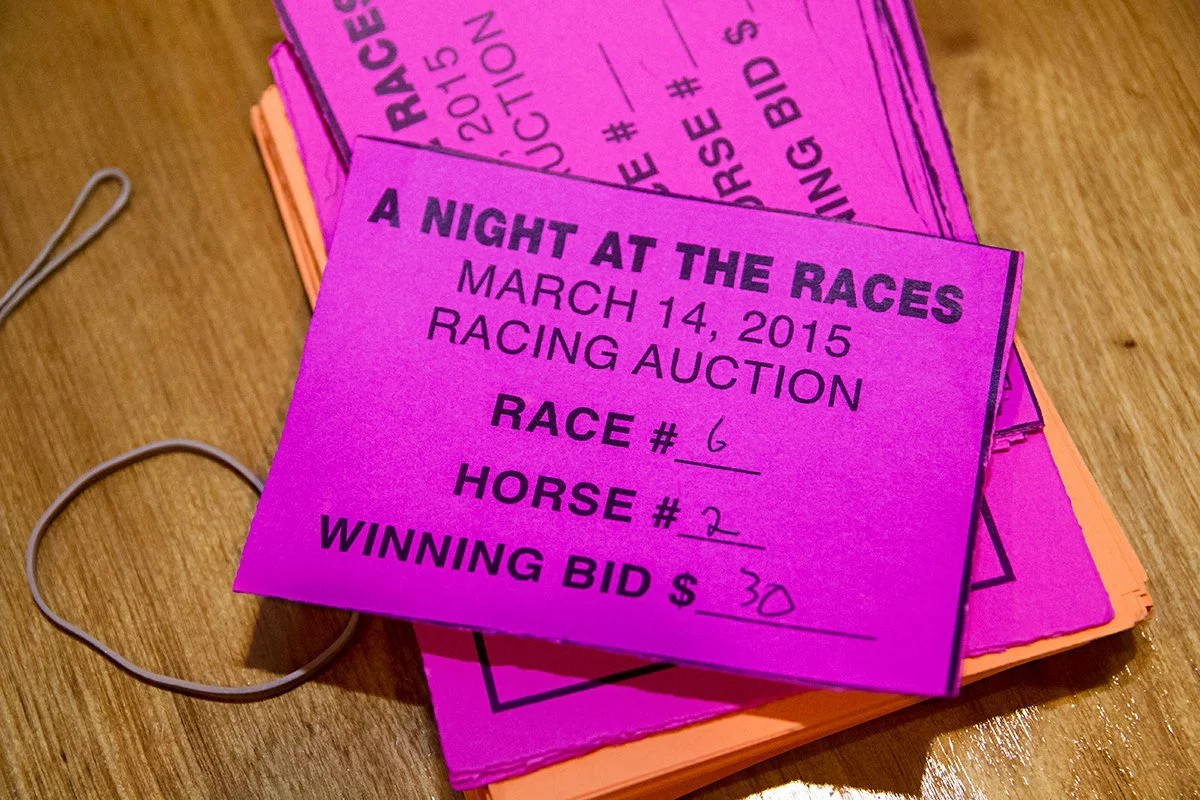 A NIGHT AT THE RACES
MARCH 14, 2015
RACING AUCTION
RACE # 6
HORSE # 2
WINNING BID $ 30
RACES
2015
#
#
BID $